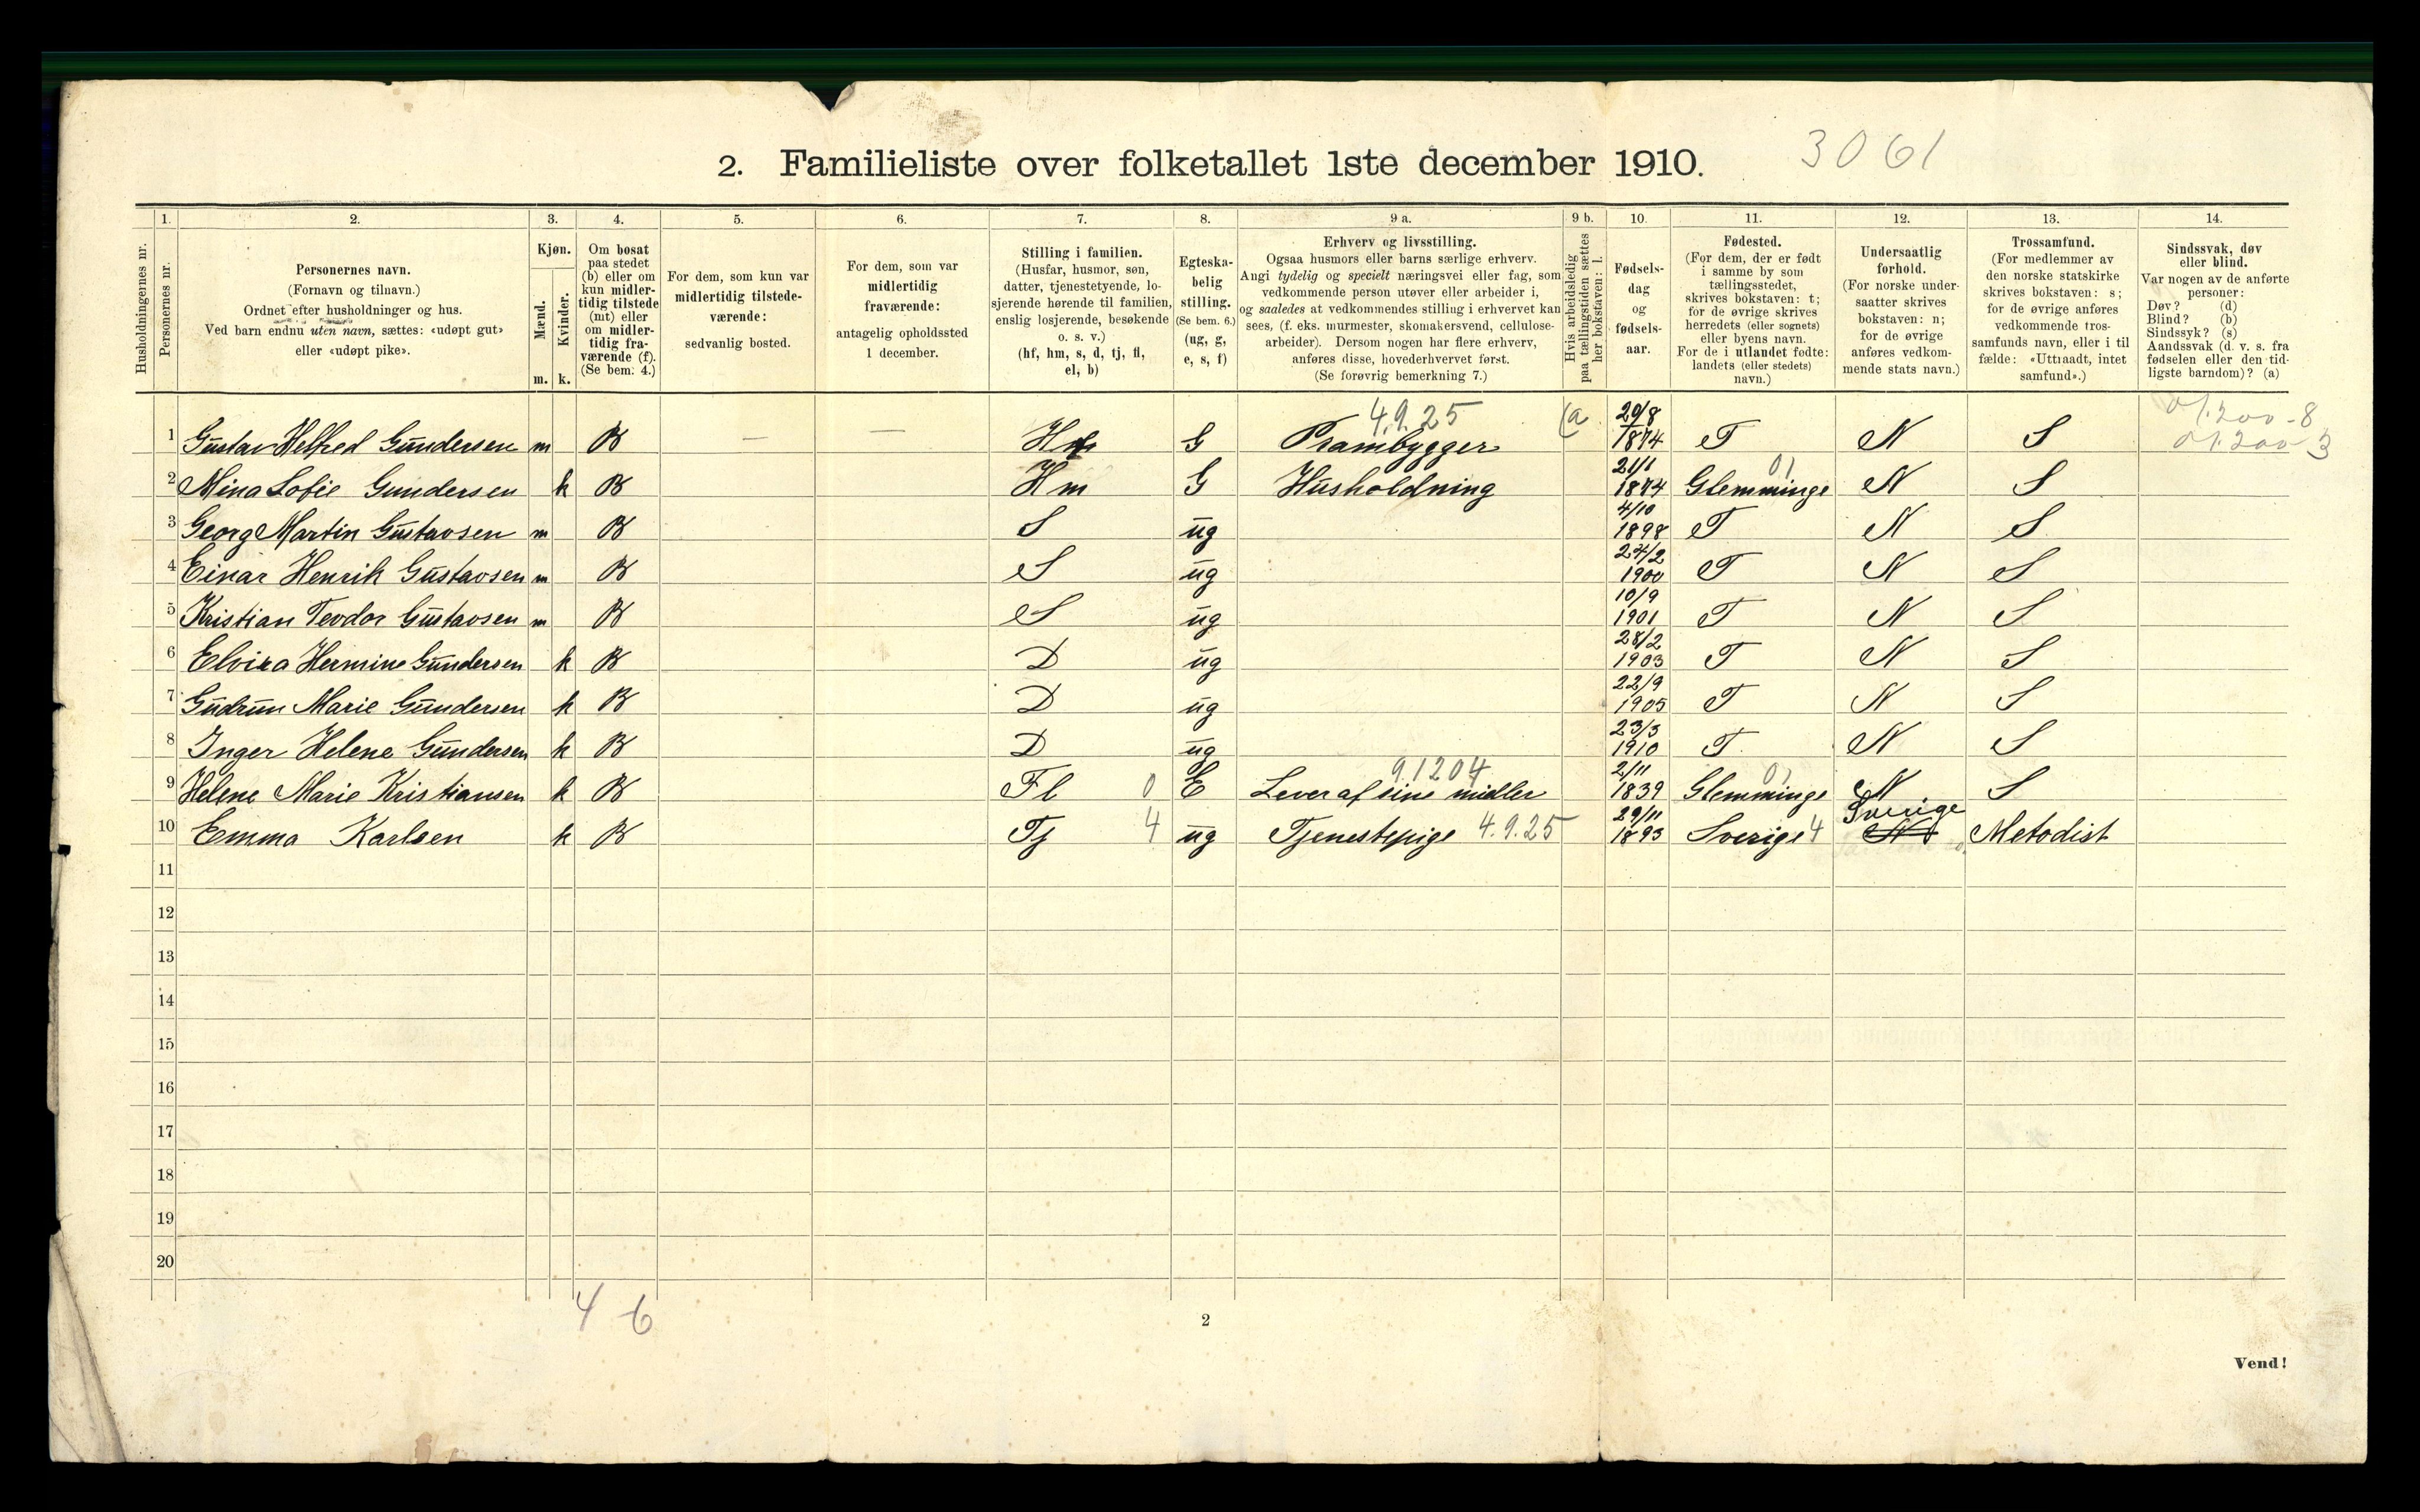 2. Familieliste over folketallet 1ste december 1910. 3061
1. 2. 3. 4. 5. 6. 7. 8. 9 a. 9 b. 10. 11. 12. 13. 14.
Husholdningernes nr.
Personernes nr.
Personernes navn.
(Fornavn og tilnavn.)
Ordnet efter husholdninger og hus.
Ved barn endnu uten navn, sættes: «udøpt gut»
eller «udøpt pike».
Kjøn.
Mænd.
Kvinder.
m. k.
Om bosat
paa stedet
(b) eller om
kun midler-
tidig tilstede
(mt) eller
om midler-
tidig fra-
værende (f).
(Se bem. 4.)
For dem, som kun var
midlertidig tilstede-
værende:
sedvanlig bosted.
For dem, som var
midlertidig
fraværende:
antagelig opholdssted
1 december.
Stilling i familien.
(Husfar, husmor, søn,
datter, tjenestetyende, lo-
sjerende hørende til familien,
enslig losjerende, besøkende
o. s. v.)
(hf, hm, s, d, tj, fl,
el, b)
Egteska-
belig
stilling.
(Se bem. 6.)
(ug, g,
e, s, f)
Erhverv og livsstilling.
Ogsaa husmors eller barns særlige erhverv.
Angi tydelig og specielt næringsvei eller fag, som
vedkommende person utøver eller arbeider i,
og saaledes at vedkommendes stilling i erhvervet kan
sees, (f. eks. murmester, skomakersvend, cellulose-
arbeider). Dersom nogen har flere erhverv,
anføres disse, hovederhvervet først.
(Se forøvrig bemerkning 7.)
Hvis arbeidsledig
paa tællingstiden sættes
her bokstaven: l.
Fødsels-
dag
og
fødsels-
aar.
Fødested.
(For dem, der er født
i samme by som
tællingsstedet,
skrives bokstaven: t;
for de øvrige skrives
herredets (eller sognets)
eller byens navn.
For de i utlandet fødte:
landets (eller stedets)
navn.)
Undersaatlig
forhold.
(For norske under-
saatter skrives
bokstaven: n;
for de øvrige
anføres vedkom-
mende stats navn.)
Trossamfund.
(For medlemmer av
den norske statskirke
skrives bokstaven: s;
for de øvrige anføres
vedkommende tros-
samfunds navn, eller i til
fælde: «Uttraadt, intet
samfund».)
Sindssvak, døv
eller blind.
Var nogen av de anførte
personer:
Døv? (d)
Blind? (b)
Sindssyk? (s)
Aandssvak (d. v. s. fra
fødselen eller den tid-
ligste barndom)? (a)
4.9.25 (a 01.200-8
1 Gustav Helfred Gundersen m B — — Hf G Prambygger 20/8 1874 T N S 01.200-3
2 Mina Sofie Gundersen k B Hm G Husholdning 21/1 1874 Glemminge 01 N S
3 Georg Martin Gustavsen m B S ug 4/10 1898 T N S
4 Einar Henrik Gustavsen m B S ug 24/2 1900 T N S
5 Kristian Teodor Gustavsen m B S ug 10/9 1901 T N S
6 Elvira Hermine Gundersen k B D ug 28/2 1903 T N S
7 Gudrun Marie Gundersen k B D ug 22/9 1905 T N S
8 Inger Helene Gundersen k B D ug 23/3 1910 T. N S
9.1204
9 Helene Marie Kristiansen k B Fl 0 E Lever af sine midler 2/11 1839 Glemminge 01 N S
10 Emma Karlsen k B Tj 4 ug Tjenestepige 4.9.25 29/11 1893 Sverige 4 N Sverige Metodist
11
12
13
14
15
16
17
18
19
20
4 6
2
Vend!